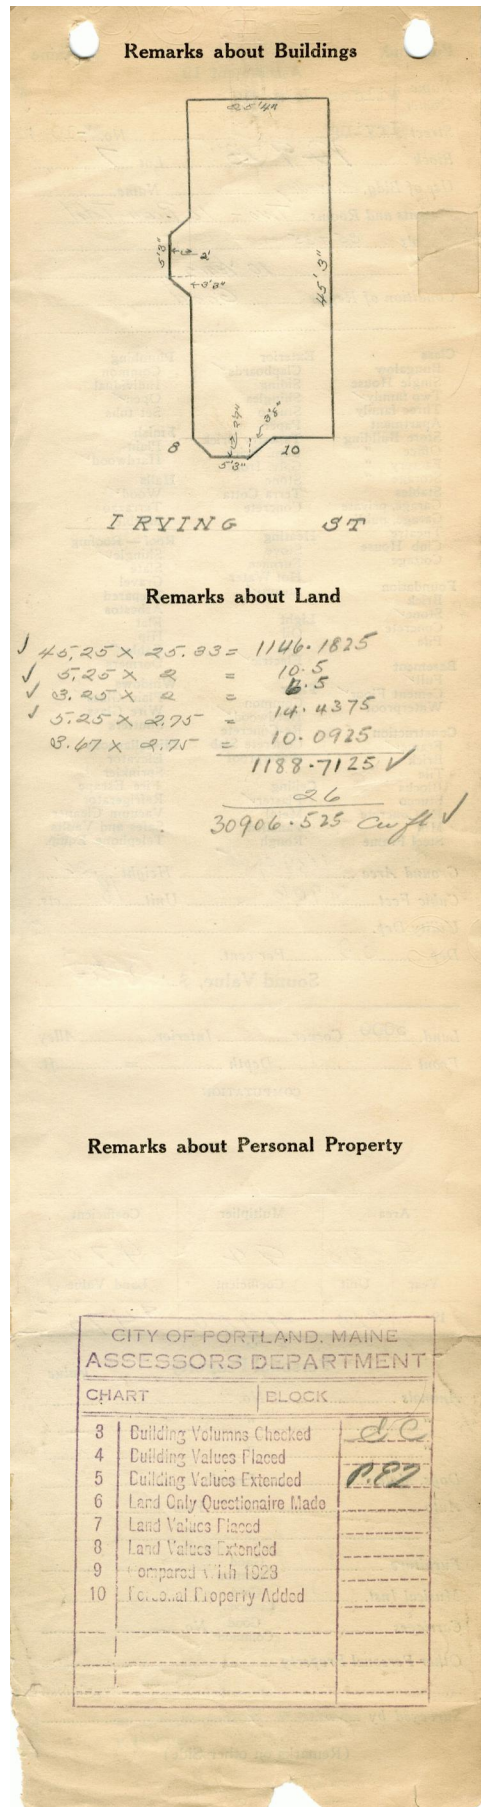 Remarks about Buildings
25'4"
45'3"
5'3"
2'
3'3"
3'8"
2'9"
8
5'3"
10
IRVING ST
Remarks about Land
√ 45.25 x 25.33 = 1146.1825
√ 5.25 x 2 = 10.5
√ 3.25 x 2 = 6.5
√ 5.25 x 2.75 = 14.4375
3.67 x 2.75 = 10.0925
1188.7125 √
26
30906.525 Cu ft √
Remarks about Personal Property
CITY OF PORTLAND, MAINE
ASSESSORS DEPARTMENT
CHART BLOCK
3 Building Volumns Checked
4 Building Values Placed
5 Building Values Extended
6 Land Only Questionaire Made
7 Land Values Placed
8 Land Values Extended
9 Compared With 1923
10 Personal Property Added